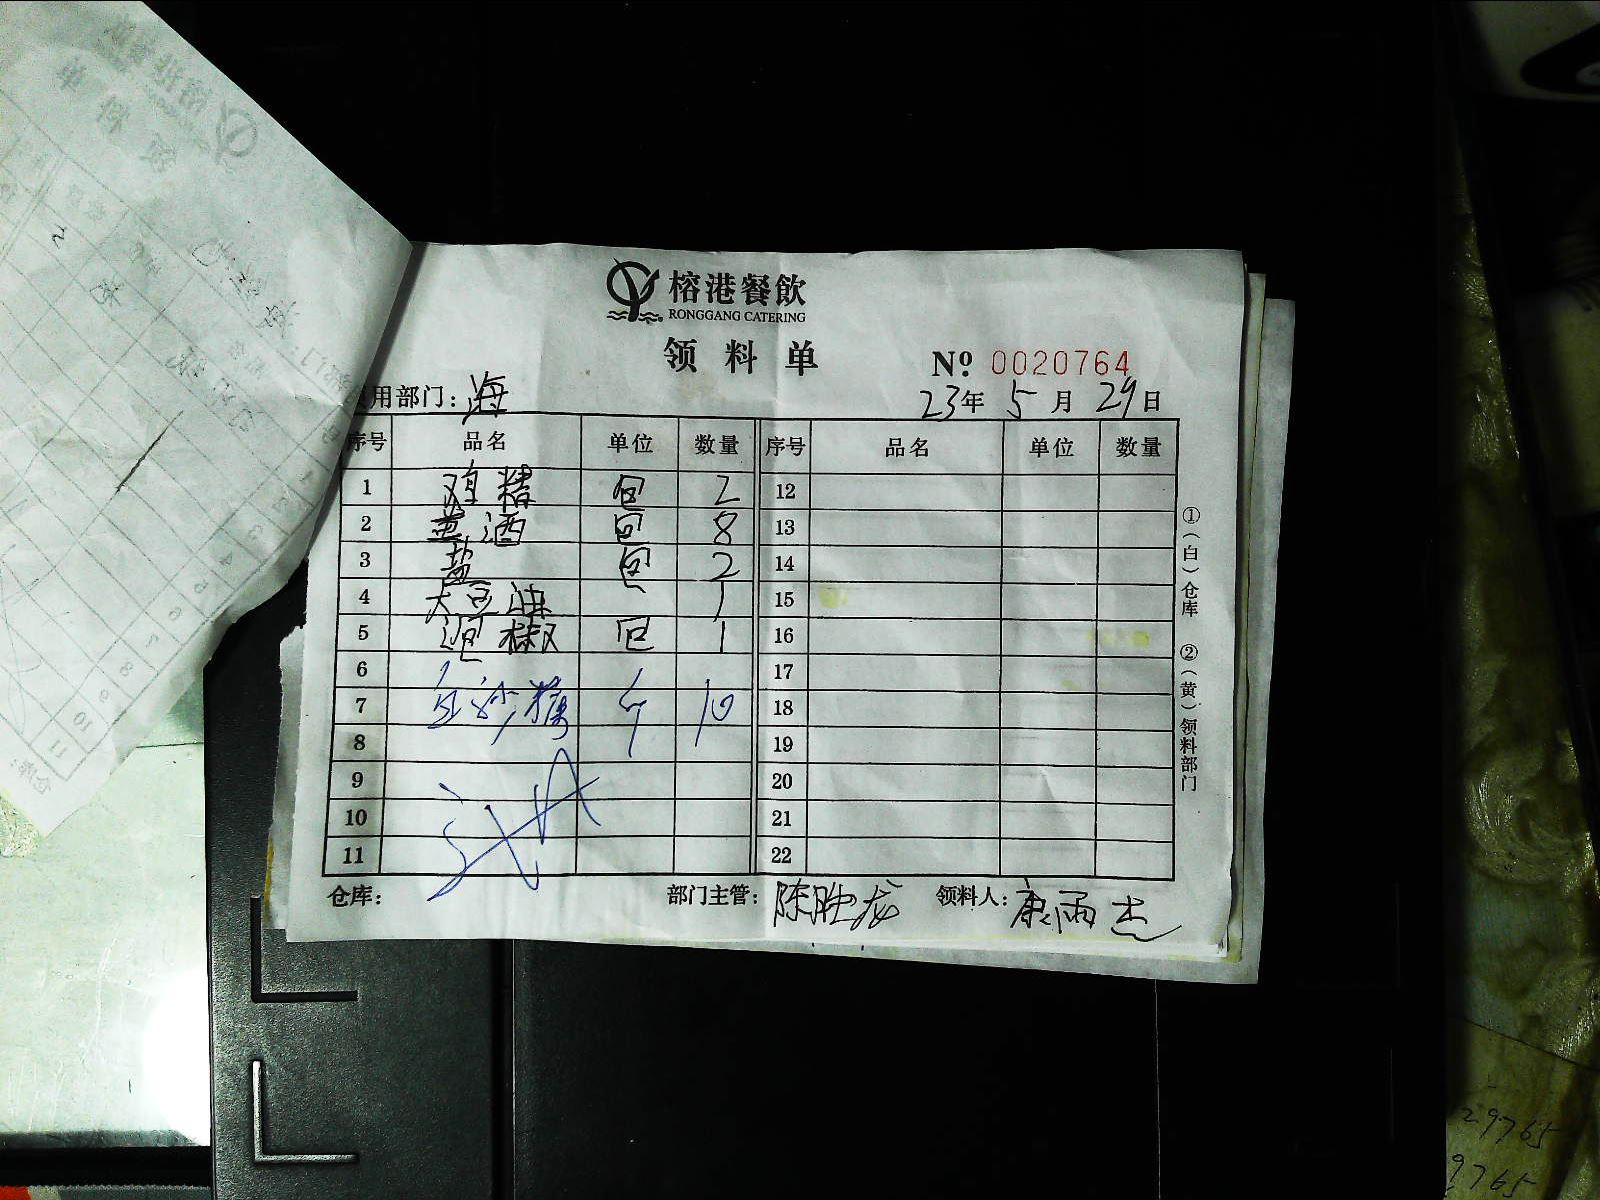 榕港餐飲
RONGGANG CATERING
领料单
№ 0020764
用部门：海 23年 5月 29日
序号 品名 单位 数量 序号 品名 单位 数量
1 鸡精 包 2 12
2 黄酒 包 8 13
3 盐 包 2 14
4 大豆油 1 15
5 泡椒 包 1 16
6 17
7 白沙糖 斤 10 18
8 19
9 20
10 21
11 22
①（白）仓库 ②（黄）领料部门
仓库： 部门主管：陈胜龙 领料人：康雨杰
29765
9765